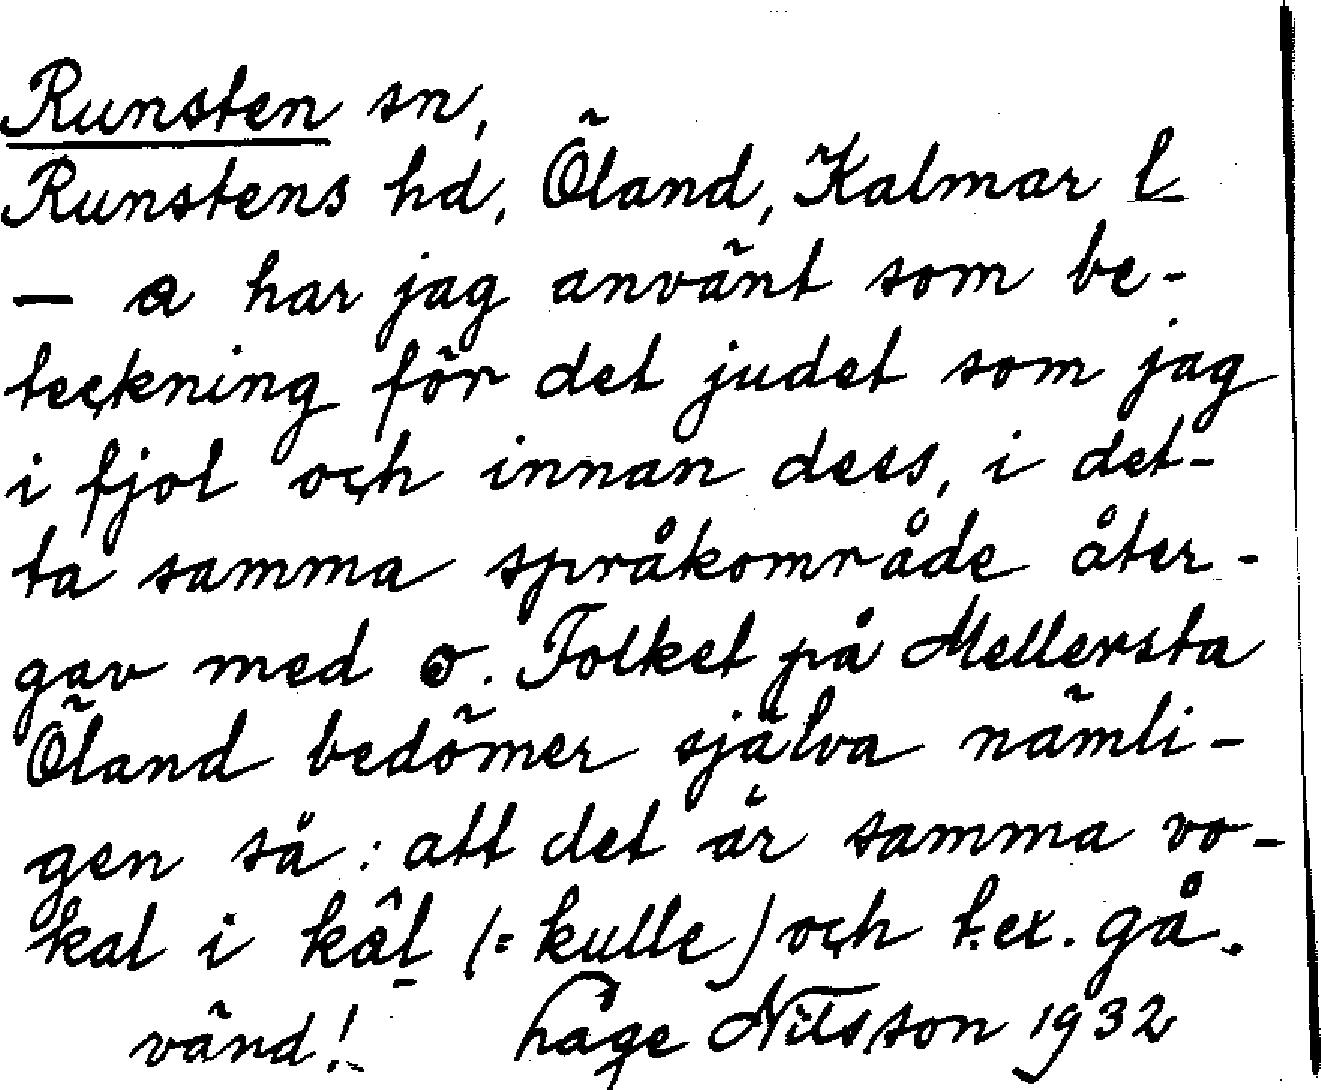 Runsten sn,
Runstens hd, Öland, Kalmar l
— a har jag använt som be-
teckning för det judet som jag
i fjol och innan dess, i det-
ta samma språkområde åter-
gav med σ. Folket på Mellersta
Öland bedömer själva nämli-
gen så: att det är samma vo-
kal i kâl (= kulle) och t.ex. gå.
vänd! Håge Nilsson 1932